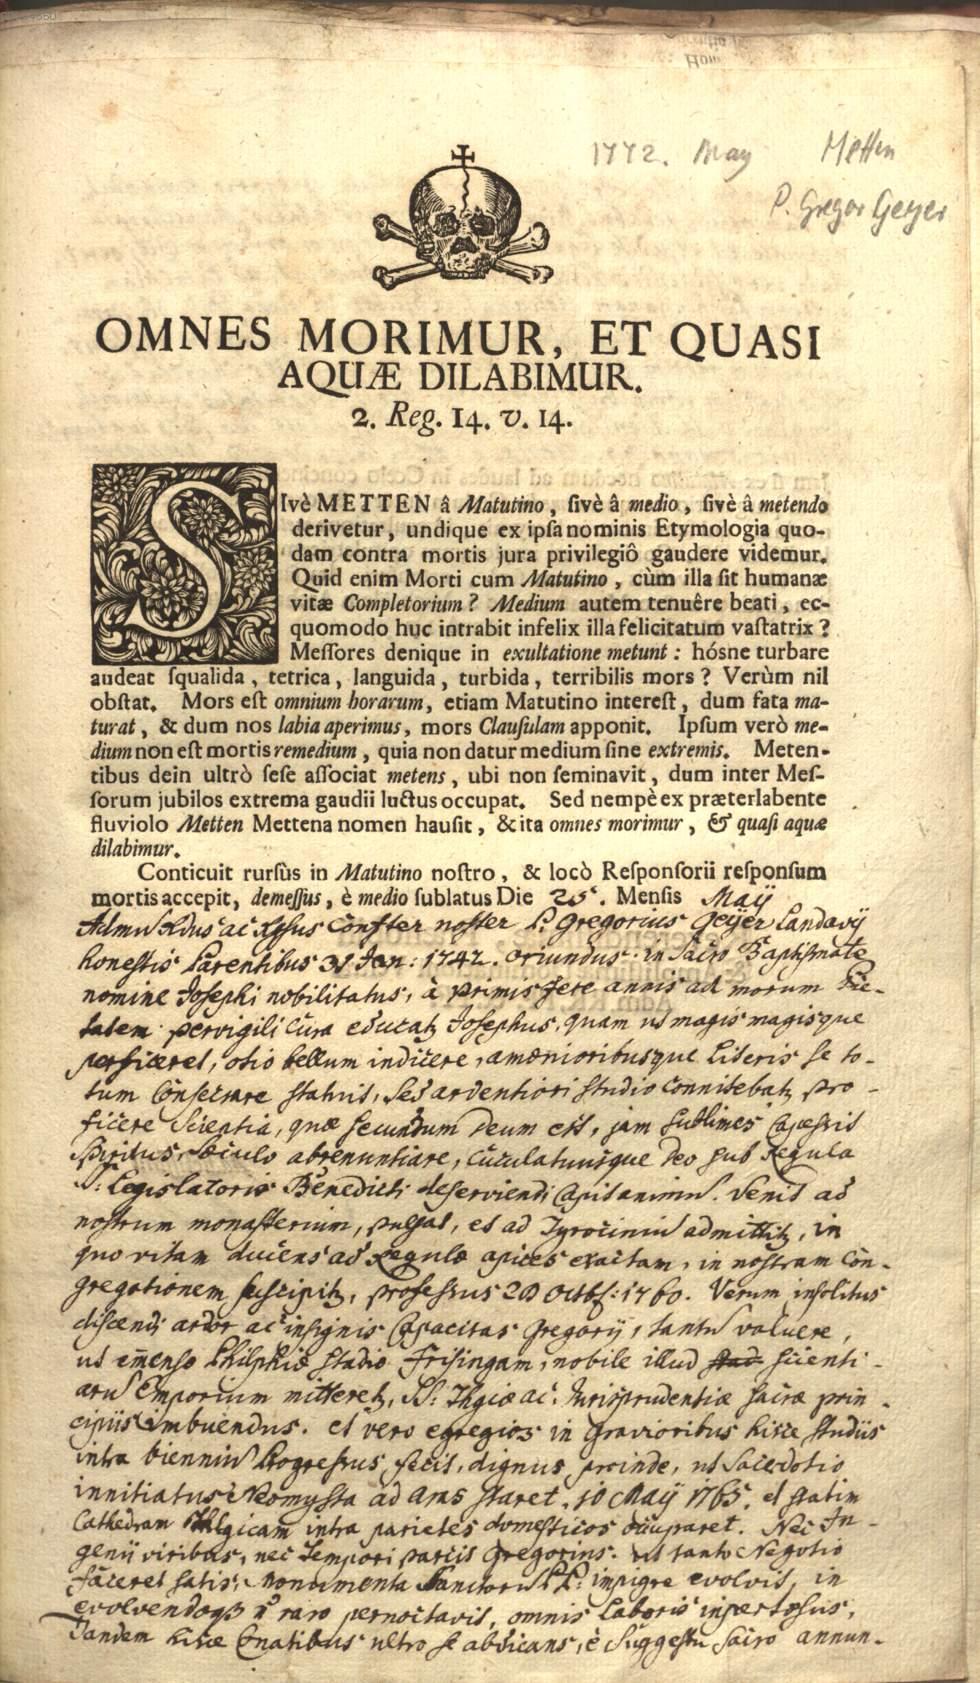 1772. May Metten
P. Gregor Geyer
OMNES MORIMUR, ET QUASI
AQUÆ DILABIMUR.
2. Reg. 14. v. 14.
SIvè METTEN â Matutino, ſivè â medio, ſivè â metendo
derivetur, undique ex ipſa nominis Etymologia quo-
dam contra mortis jura privilegiô gaudere videmur.
Quid enim Morti cum Matutino, cùm illa ſit humanæ
vitæ Completorium? Medium autem tenuêre beati, ec-
quomodo huc intrabit infelix illa felicitatum vaſtatrix?
Meſſores denique in exultatione metunt: hósne turbare
audeat ſqualida, tetrica, languida, turbida, terribilis mors? Verùm nil
obſtat. Mors eſt omnium horarum, etiam Matutino intereſt, dum fata ma-
turat, & dum nos labia aperimus, mors Clauſulam apponit. Ipſum verò me-
dium non eſt mortis remedium, quia non datur medium ſine extremis. Meten-
tibus dein ultrò ſeſe aſſociat metens, ubi non ſeminavit, dum inter Meſ-
ſorum jubilos extrema gaudii luctus occupat. Sed nempè ex præterlabente
fluviolo Metten Mettena nomen hauſit, & ita omnes morimur, & quaſi aquæ
dilabimur.
Conticuit rursùs in Matutino noſtro, & locò Reſponſorii reſponſum
mortis accepit, demeſſus, è medio ſublatus Die 25. Menſis Maÿ
Admu Rdus ac Rgsus Confter noster P. Gregorius Geÿer Landavÿ
honestis Parentibus 31 Jan: 1742. oriundus. in Sacro Baptismate
nomine Josephi nobilitatus, à primis fere annis ad morum Pie-
tatem pervigili cura educatz Josephus, quam ut magis magisque
perficeret, otio bellum indicere, amænioribusque Literis se to-
tum Consecrare statuit, sed ardentiori studio connitebatz pro-
ficere Scientia, quæ secundum Deum est, jam sublimes Capessis
Spiritus, Sæculo abrenuntiare, Cuculatumque Deo sub Regula
S: Legislatoris Benedicti deserviendi Capit animu. Venit ad
nostrum monasterium, pulsat, et ad Tyrociniu admittitz, in
quo vitam ducens ad Regulæ apices exactam, in nostram Con-
gregationem suscipitz, professus 20 Octbs: 1760. Verum insolitus
discendi ardor ac insignis Capacitas Gregorÿ, tantu valuere,
ut emenso Philphiæ stadio Frisingam, nobile illud scienti-
aru Emporium mitteretz, SS: Thgiæ ac Jurisprudentiæ sacræ prin-
cipiis imbuendus. et vero egregios in Gravioribus hisce studiis
intra bienniu Progressus fecit, dignus proinde, ut Sacerdotio
innitiatus Neomysta ad aras staret 10 Maÿ 1765. et statim
Cathedram Thlgicam intra parietes domesticos occuparet. Nec In-
genii viribus, nec Tempori parcit Gregorius. ut tanto Negotio
faceret satis, Monumenta Sanctoru PP: impigre evolvit, in
evolvendoq3 no raro pernoctavit, omnis Laboris
Tandem hisce Conatibus ultro se abdicans, è Suggestu Sacro annun-